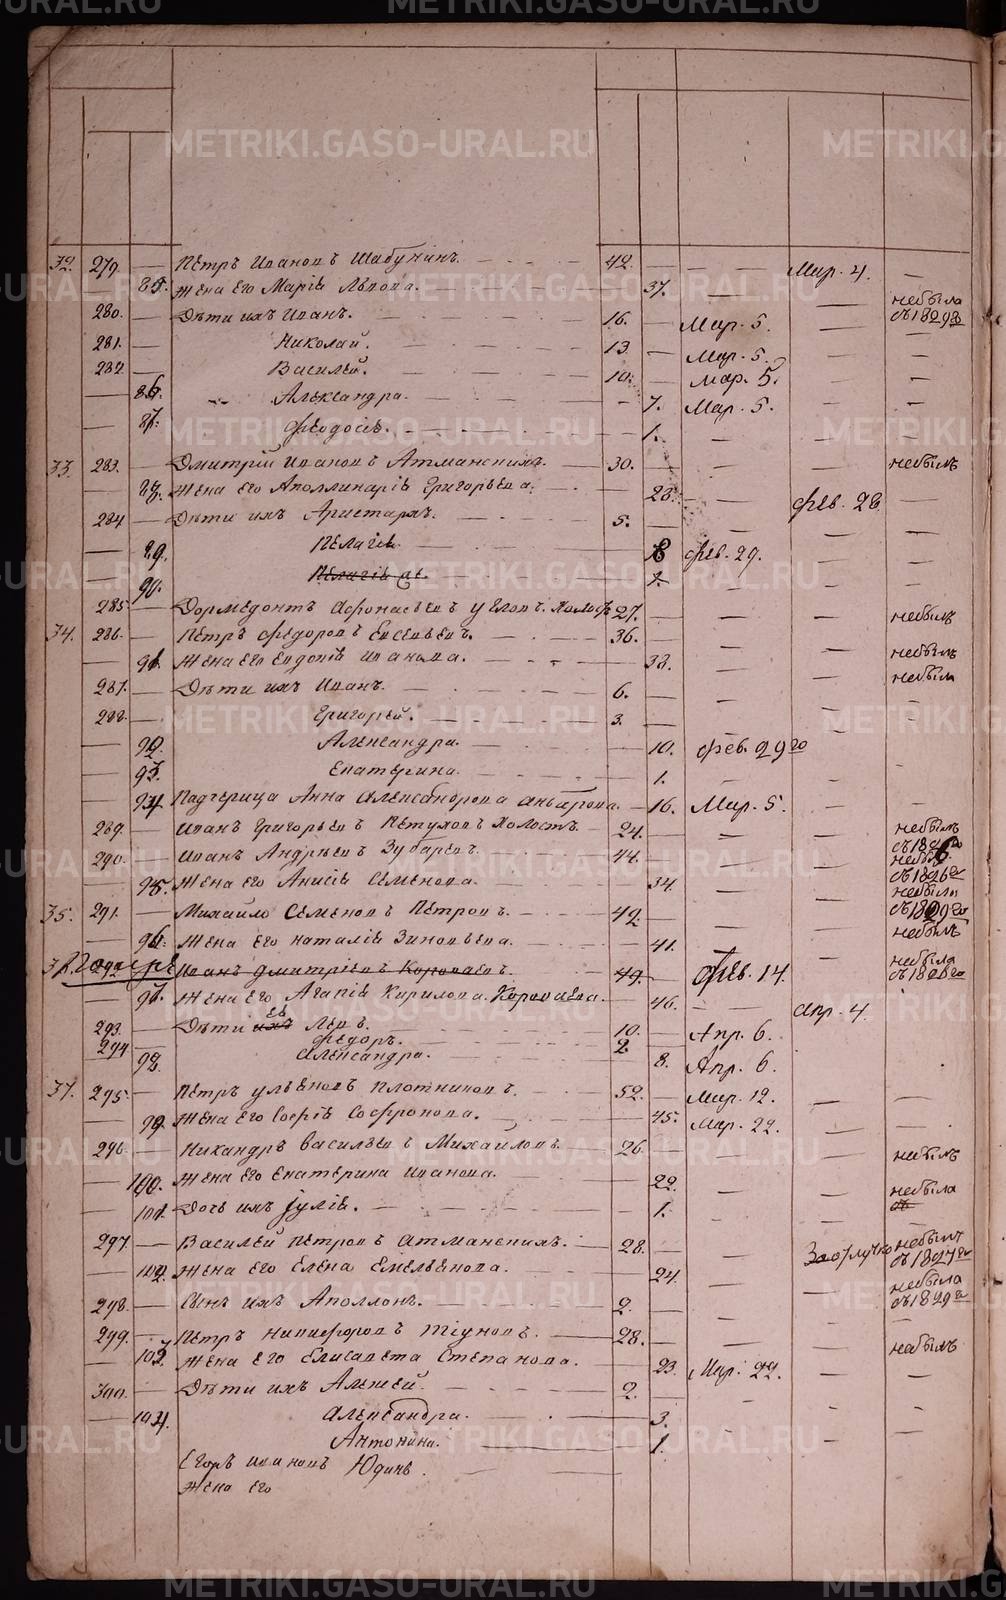 32. 279. — Петръ Ивановъ Шабунинъ. 42. — — Мар. 4. —
— 85. Жена его Марія Львова. — 37. — — не была съ 1828 го
280. — Дѣти ихъ Иванъ. 16. — Мар. 5. — —
281. — Николай. 13. — Мар. 5. — —
282. — Василей. 10. — Мар. 5. — —
— 86. Александра. — 7. Мар. 5. — —
— 87. Феодосія. — 1. — — —
33. 283. — Дмитрій Ивановъ Атманскихъ. — 30. — — — не былъ
— 88. Жена его Аполлинарія Григорьева. — 28. — фев. 28. —
284. — Дѣти ихъ Аристархъ. 5. — — — —
— 89. Пелагія. — 8 фев. 29. — —
— 90. — 1. — — —
285. — Дормедонтъ Афонасьевъ 27. — — — не былъ
34. 286. — Петръ Федоровъ Евсевьевъ. 36. — — —
— 91. Жена его Евдокія Иванова. — 38. — — не былъ
287. — Дѣти ихъ Иванъ. 6. — — — не была
288. — Григорей. 3. — — — —
— 92. Александра. — 10. фев. 29 го — —
— 93. Екатерина. — 1. — — —
— 94. Падчерица Анна Александрова — 16. Мар. 5. — —
289. — Иванъ Григорьевъ Петуховъ Холостъ — 24. — — — не былъ
290. — Иванъ Андреевъ Зубаревъ. 44. — — —
— 95. Жена его Анисія Семенова. — 34. — — съ 1826 го не была
35. 291. — Михайло Семеновъ Петровъ. 42. — — —
— 96. Жена его Наталія Зиновьева. — 41. — — не былъ
Померъ Иванъ Дмитріевъ Короваевъ. 49. — фев. 14. не была
— 97. Жена его Агапія Кирилова. Короваева. — 46. — Апр. 4.
293. — Дѣти ихъ ея Левъ. 10. — Апр. 6. —
294 Федоръ. 2
98. Александра. 8. Апр. 6. —
37. 295. — Петръ Ульяновъ Плотниковъ. 52. — Мар. 12. — —
— 99. Жена его Софія Софронова. — 45. Мар. 22. — —
296. — Никандръ Васильевъ Михайловъ. 26. — — — не былъ
— 100. Жена его Екатерина Иванова. — 22. — —
— 101. Дочь ихъ Іулія. — 1. — — не была съ
297. — Василей Петровъ Атманскихъ. — 28. — — За отлучко не былъ съ 1827 го
— 102. Жена его Елена Емельянова. — 24. — — не была съ 1828 го
298. — Сынъ ихъ Аполлонъ. 2. — — —
299. — Петръ Никифоровъ Тіуновъ. — 28. — — — не былъ
— 103. Жена его Елисавета Степанова. — 23. Мар. 22. — —
300. — Дѣти ихъ Алексей. 2. — — — —
— 104. Александра. — 3. — — —
Антонина. — 1. — — —
Егоръ Ивановъ Юдинъ. —
Жена его
METRIKI.GASO-URAL.RU